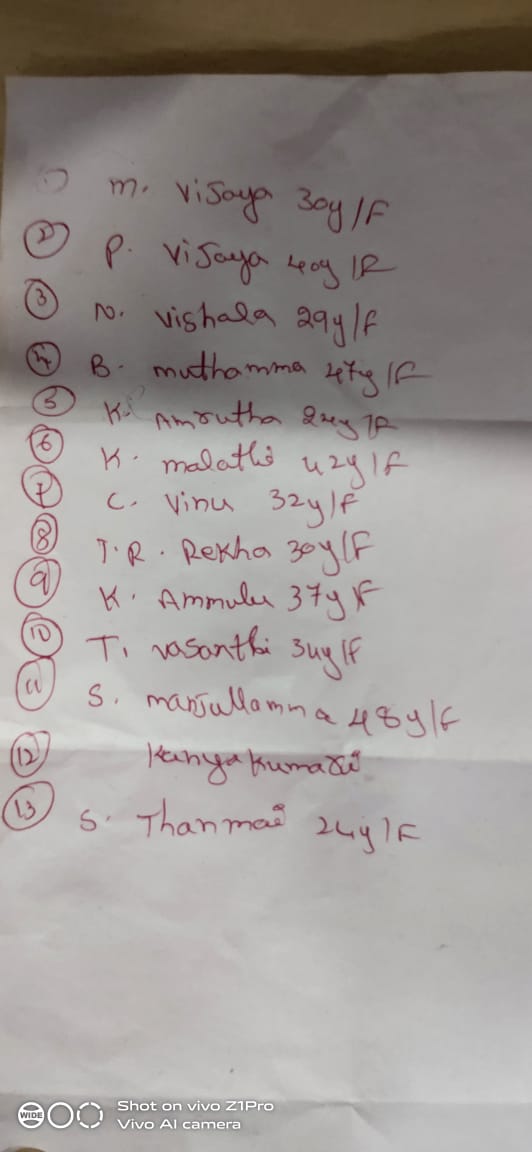 1) M. Vijaya 30y/F
2 P. Vijaya 40y/F
3 N. Vishala 29y/F
4 B. Muthamma 47y/F
5 K. Amrutha 24y/F
6 K. Malathi 42y/F
7 C. Vinu 32y/F
8 T.R. Rekha 30y/F
9 K. Ammulu 37y/F
10 T. Vasanthi 34y/F
11 S. Manjullamma 48y/F
12 Kanyakumari
13 S. Thanmai 24y/F
WIDE
Shot on vivo Z1Pro
Vivo AI camera